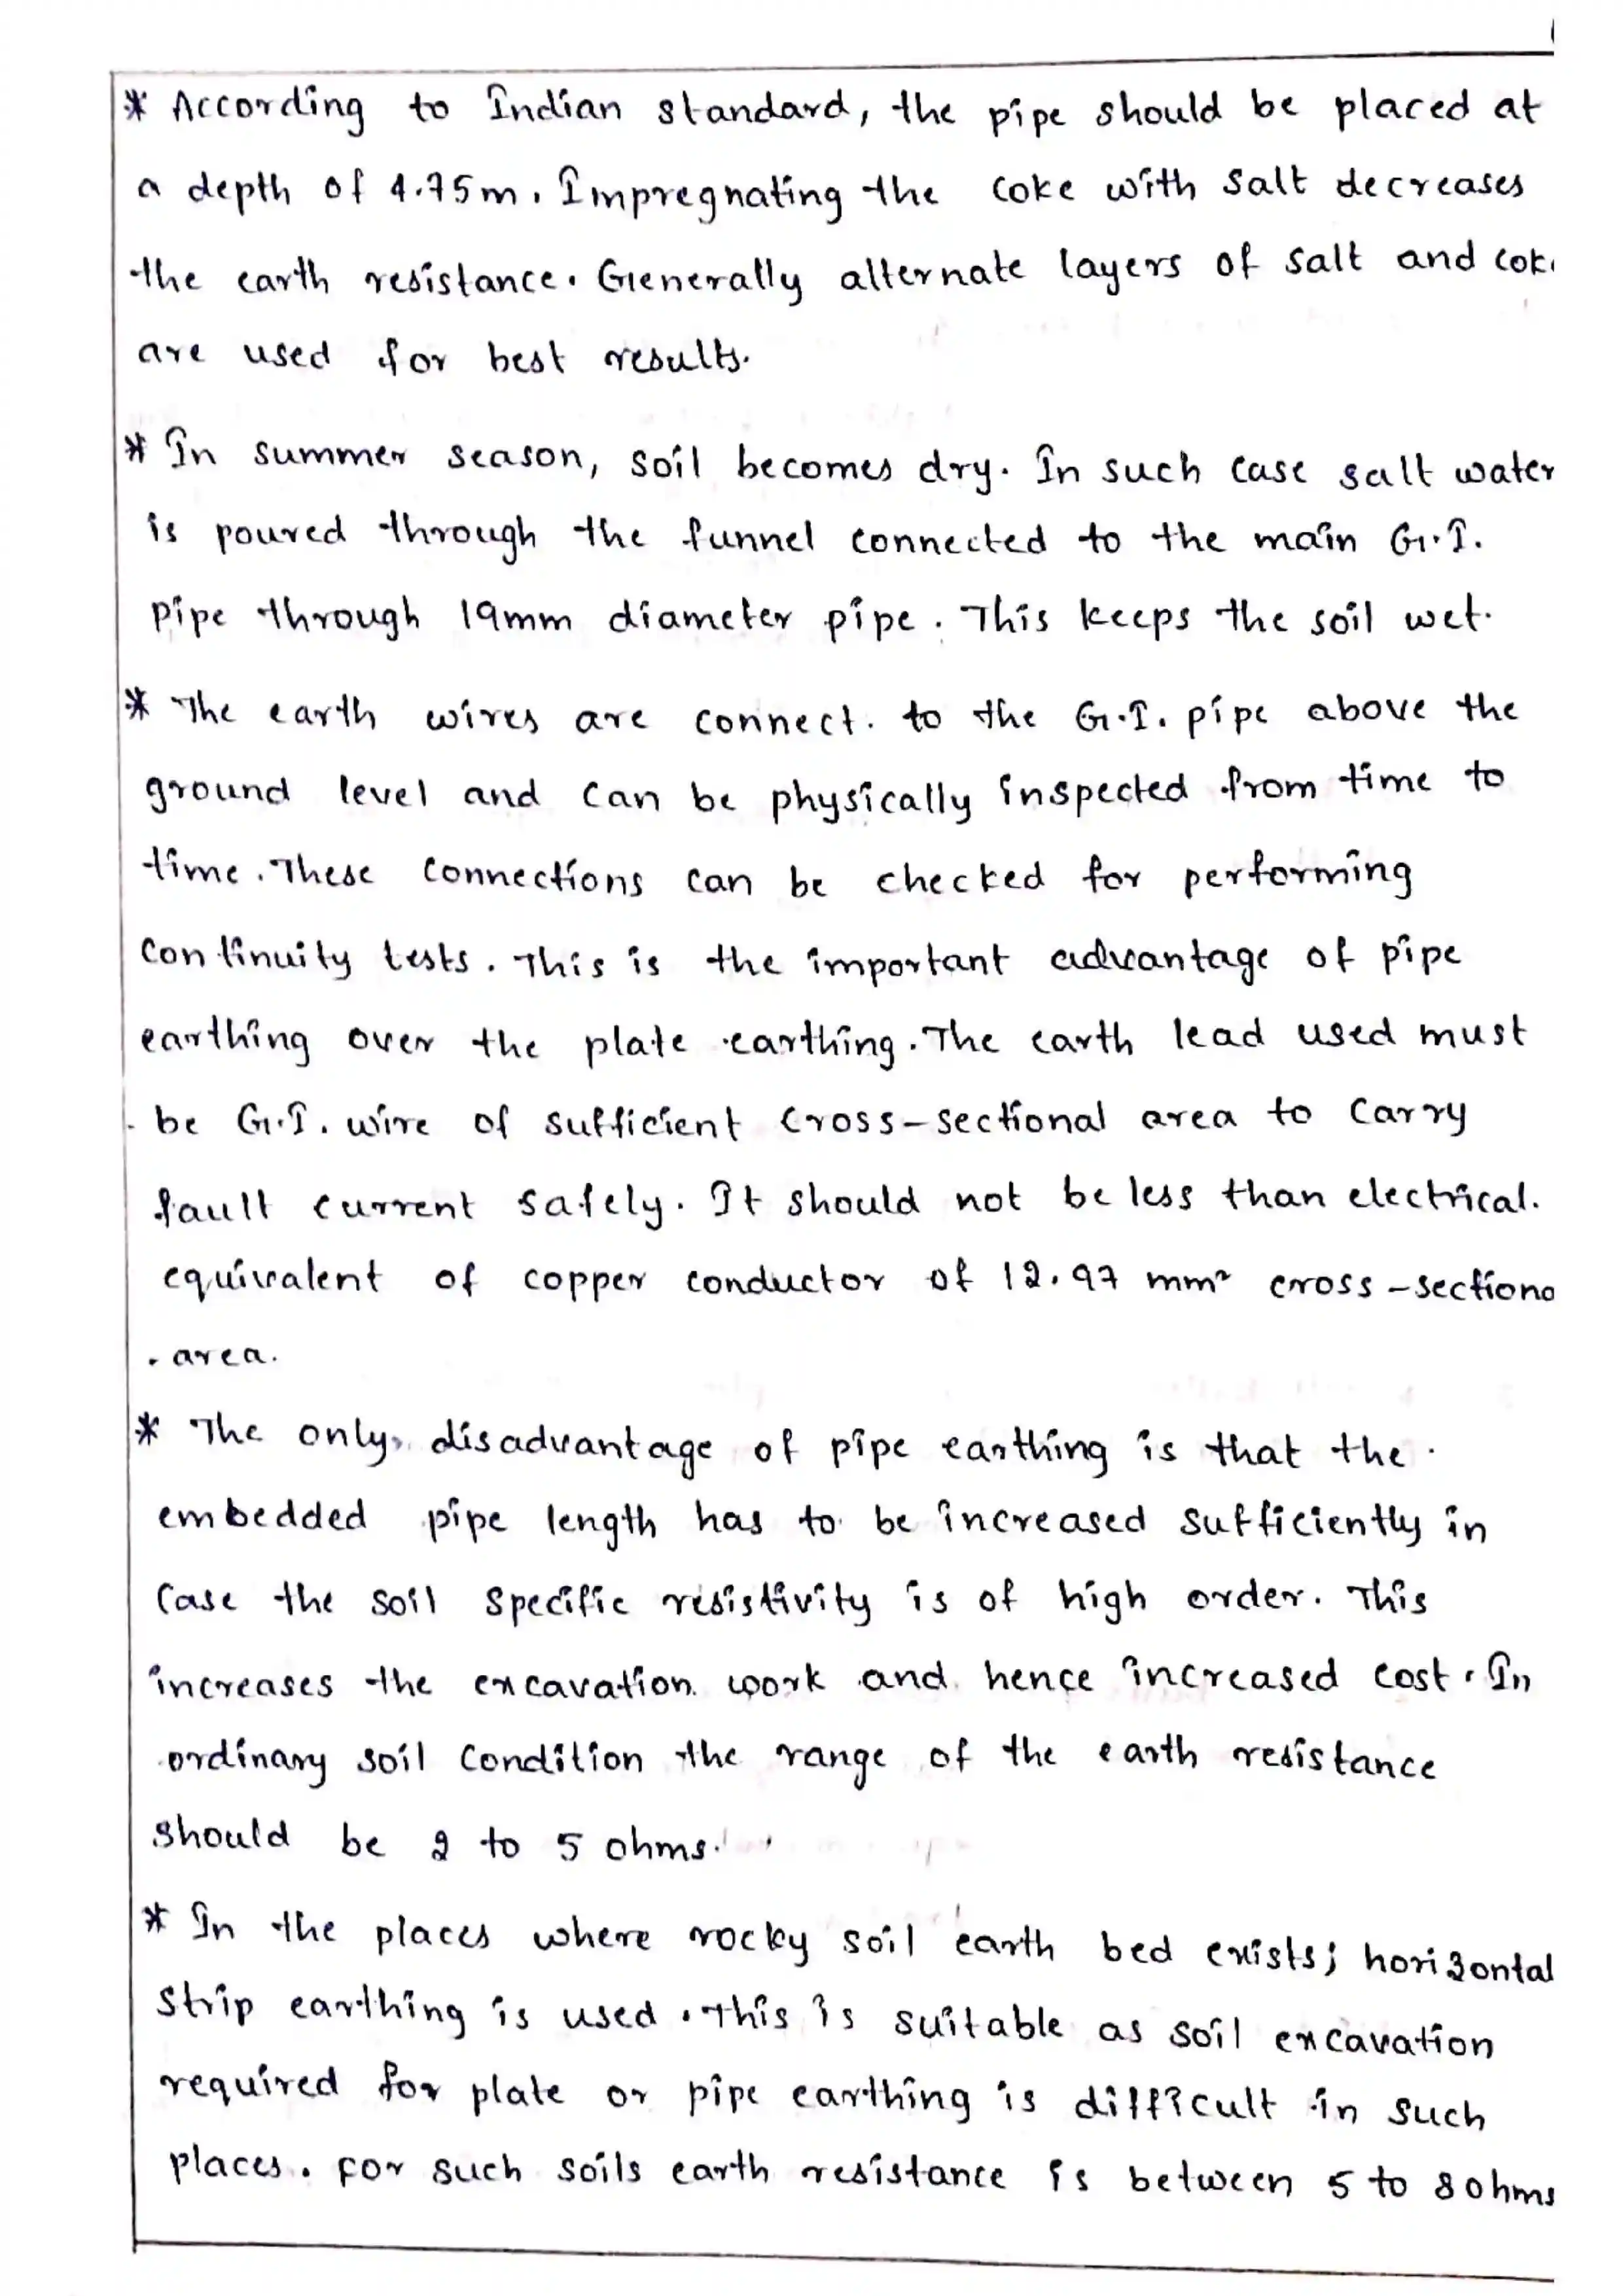 * According to Indian standard, the pipe should be placed at
a depth of 4.75m. Impregnating the coke with salt decreases
the earth resistance. Generally alternate layers of salt and cok
are used for best results.
* In summer season, soil becomes dry. In such case salt water
is poured through the funnel connected to the main G.I.
pipe through 19mm diameter pipe. This keeps the soil wet.
* The earth wires are connect. to the G.I. pipe above the
ground level and can be physically inspected from time to
time. These connections can be checked for performing
continuity tests. This is the important advantage of pipe
earthing over the plate earthing. The earth lead used must
be G.I. wire of sufficient cross-sectional area to carry
fault current safely. It should not be less than electrical.
equivalent of copper conductor of 12.97 mm² cross-sectiona
area.
* The only disadvantage of pipe earthing is that the
embedded pipe length has to be increased sufficiently in
case the soil specific resistivity is of high order. This
increases the excavation work and hence increased cost. In
ordinary soil condition the range of the earth resistance
should be 2 to 5 ohms.
* In the places where rocky soil earth bed exists; horizontal
strip earthing is used. This is suitable as soil excavation
required for plate or pipe earthing is difficult in such
places. For such soils earth resistance is between 5 to 8 ohms